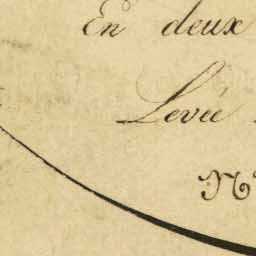 En deux
Levée
N